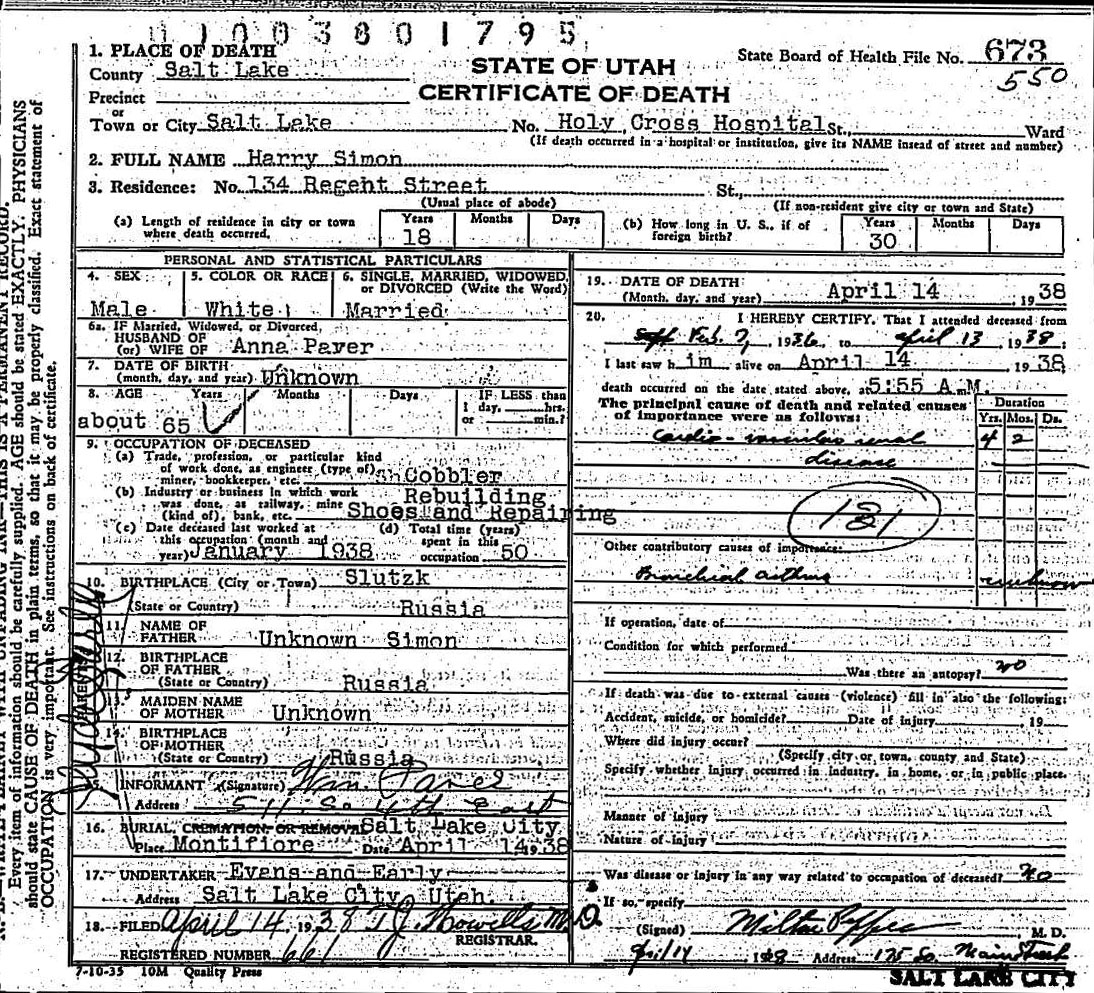 0100380 1795
1. PLACE OF DEATH
County Salt Lake
Precinct
or
Town or City Salt Lake
STATE OF UTAH
CERTIFICATE OF DEATH
State Board of Health File No. 673
550
No. Holy Cross Hospital St., Ward
(If death occurred in a hospital or institution, give its NAME insead of street and number)
2. FULL NAME Harry Simon
3. Residence: No. 134 Regent Street St.,
(Usual place of abode) (If non-resident give city or town and State)
(a) Length of residence in city or town where death occurred. Years 18 Months Days
(b) How long in U. S., if of foreign birth? Years 30 Months Days
PERSONAL AND STATISTICAL PARTICULARS
4. SEX Male
5. COLOR OR RACE White
6. SINGLE, MARRIED, WIDOWED, or DIVORCED (Write the Word) Married
6a. IF Married, Widowed, or Divorced,
HUSBAND OF
(or) WIFE OF Anna Paver
7. DATE OF BIRTH
(month, day, and year) Unknown
8. AGE Years Months Days IF LESS than
1 day, hrs.
or min.?
about 65
9. OCCUPATION OF DECEASED
(a) Trade, profession, or particular kind
of work done, as engineer (type of),
miner, bookkeeper, etc. Cobbler
(b) Industry or business in which work
was done, as railway, mine
(kind of), bank, etc. Rebuilding
Shoes and Repairing
(c) Date deceased last worked at
this occupation (month and
year) January 1938
(d) Total time (years)
spent in this
occupation 50
10. BIRTHPLACE (City or Town) Slutzk
(State or Country) Russia
PARENTS
11. NAME OF
FATHER Unknown Simon
12. BIRTHPLACE
OF FATHER
(State or Country) Russia
13. MAIDEN NAME
OF MOTHER Unknown
14. BIRTHPLACE
OF MOTHER
(State or Country) Russia
INFORMANT (Signature) Wm. Paver
Address 511 So. 4th East
16. BURIAL, CREMATION OR REMOVAL Salt Lake City
Place Montifiore Date April 14 19 38
17. UNDERTAKER Evans and Early
Address Salt Lake City, Utah.
18. FILED April 14 1938 T. J. Howells M.D.
REGISTRAR.
REGISTERED NUMBER 661
7-10-35 10M Quality Press
19. DATE OF DEATH
(Month, day, and year) April 14 19 38
20. I HEREBY CERTIFY, That I attended deceased from
Feb. 7, 1936 to April 13 1938
I last saw h im alive on April 14 19 38
death occurred on the date stated above, at 5:55 A.M.
The principal cause of death and related causes
of importance were as follows:
Duration
Yrs. Mos. Ds.
Cardio-vascular renal 4 2
disease
131
Other contributory causes of importance:
Bronchial asthma unknown
If operation, date of
Condition for which performed
Was there an autopsy? no
If death was due to external causes (violence) fill in also the following:
Accident, suicide, or homicide? Date of injury , 19
Where did injury occur?
(Specify city or town, county and State)
Specify whether injury occurred in industry, in home, or in public place.
Manner of injury
Nature of injury
Was disease or injury in any way related to occupation of deceased? No
If so, specify
(Signed) Milton Pepper M. D.
April 14 1938 Address 175 So. Main Street
SALT LAKE CITY
Every item of information should be carefully supplied. AGE should be stated EXACTLY. PHYSICIANS
should state CAUSE OF DEATH in plain terms, so that it may be properly classified. Exact statement of
OCCUPATION is very important. See instructions on back of certificate.